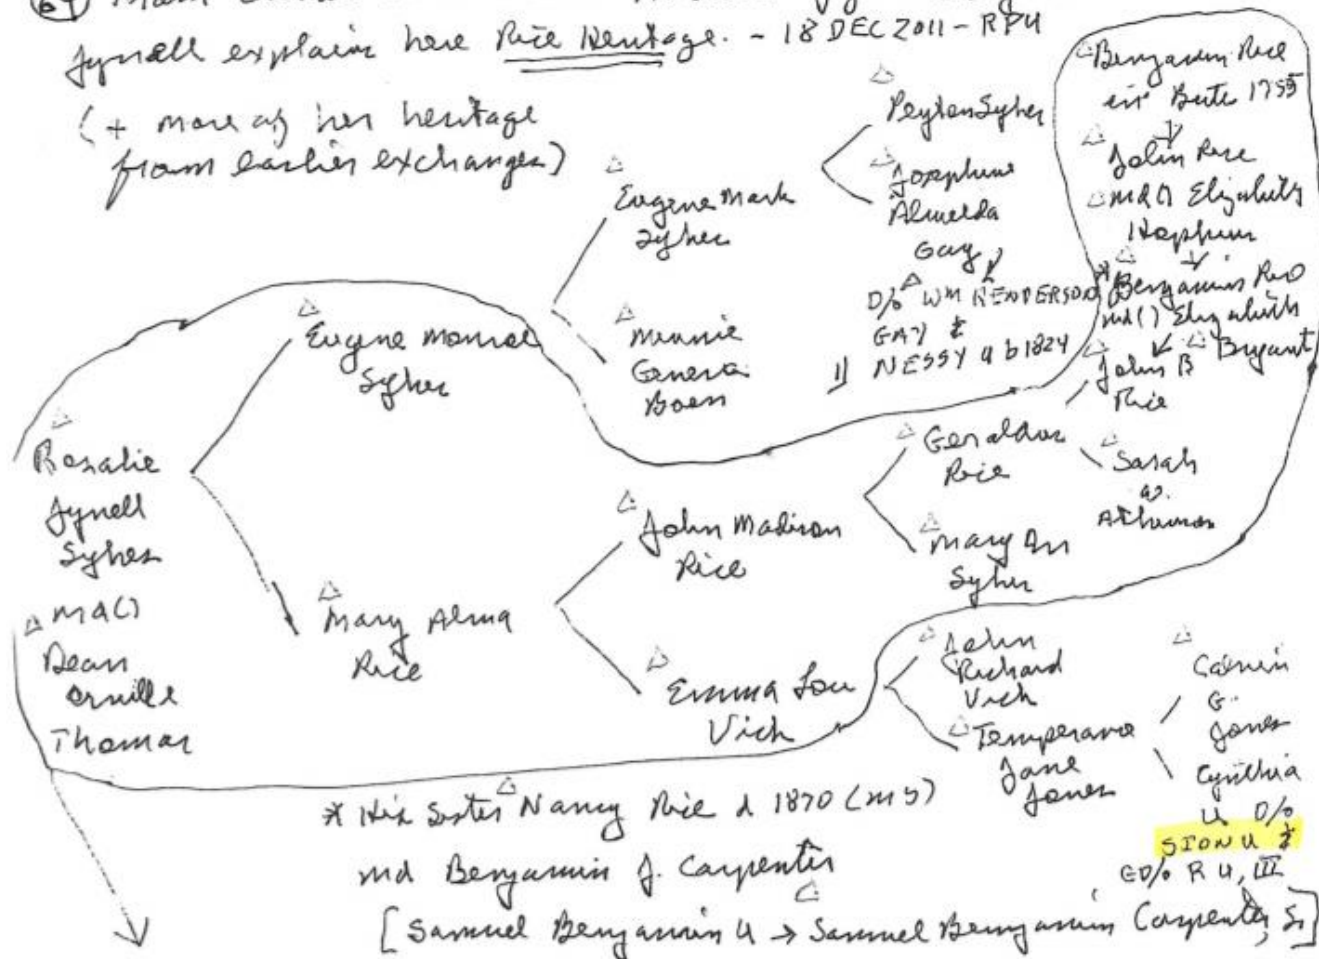 Jynell explains here Rice Heritage. - 18 DEC 2011 - RPU
(+ more of her heritage
from earlier exchanges)
Rosalie
Jynell
Sykes
md()
Dean
Orville
Thomas
Eugene Monroe
Sykes
Mary Alma
Rice
Eugene Mark
Sykes
Minnie
Geneva
Boen
John Madison
Rice
Emma Lou
Vick
Peyton Sykes
Josephine
Almeda
Gay
D/o WM HENDERSON
GAY &
NESSY U b 1824
Geraldus
Rice
Mary An
Sykes
John
Richard
Vick
Temperance
Jane
Jones
Benjamin Rice
in Bute 1755
John Rice
md() Elizabeth
*Benjamin Rice
md() Elizabeth
Bryant
John B
Rice
Sarah
G.
Jones
Cynthia
U D/o
SION U &
GD/o R U, III
* His Sister Nancy Rice d 1870 (ms)
md Benjamin J. Carpenter
[Samuel Benjamin U → Samuel Benjamin Carpenter, Sr]